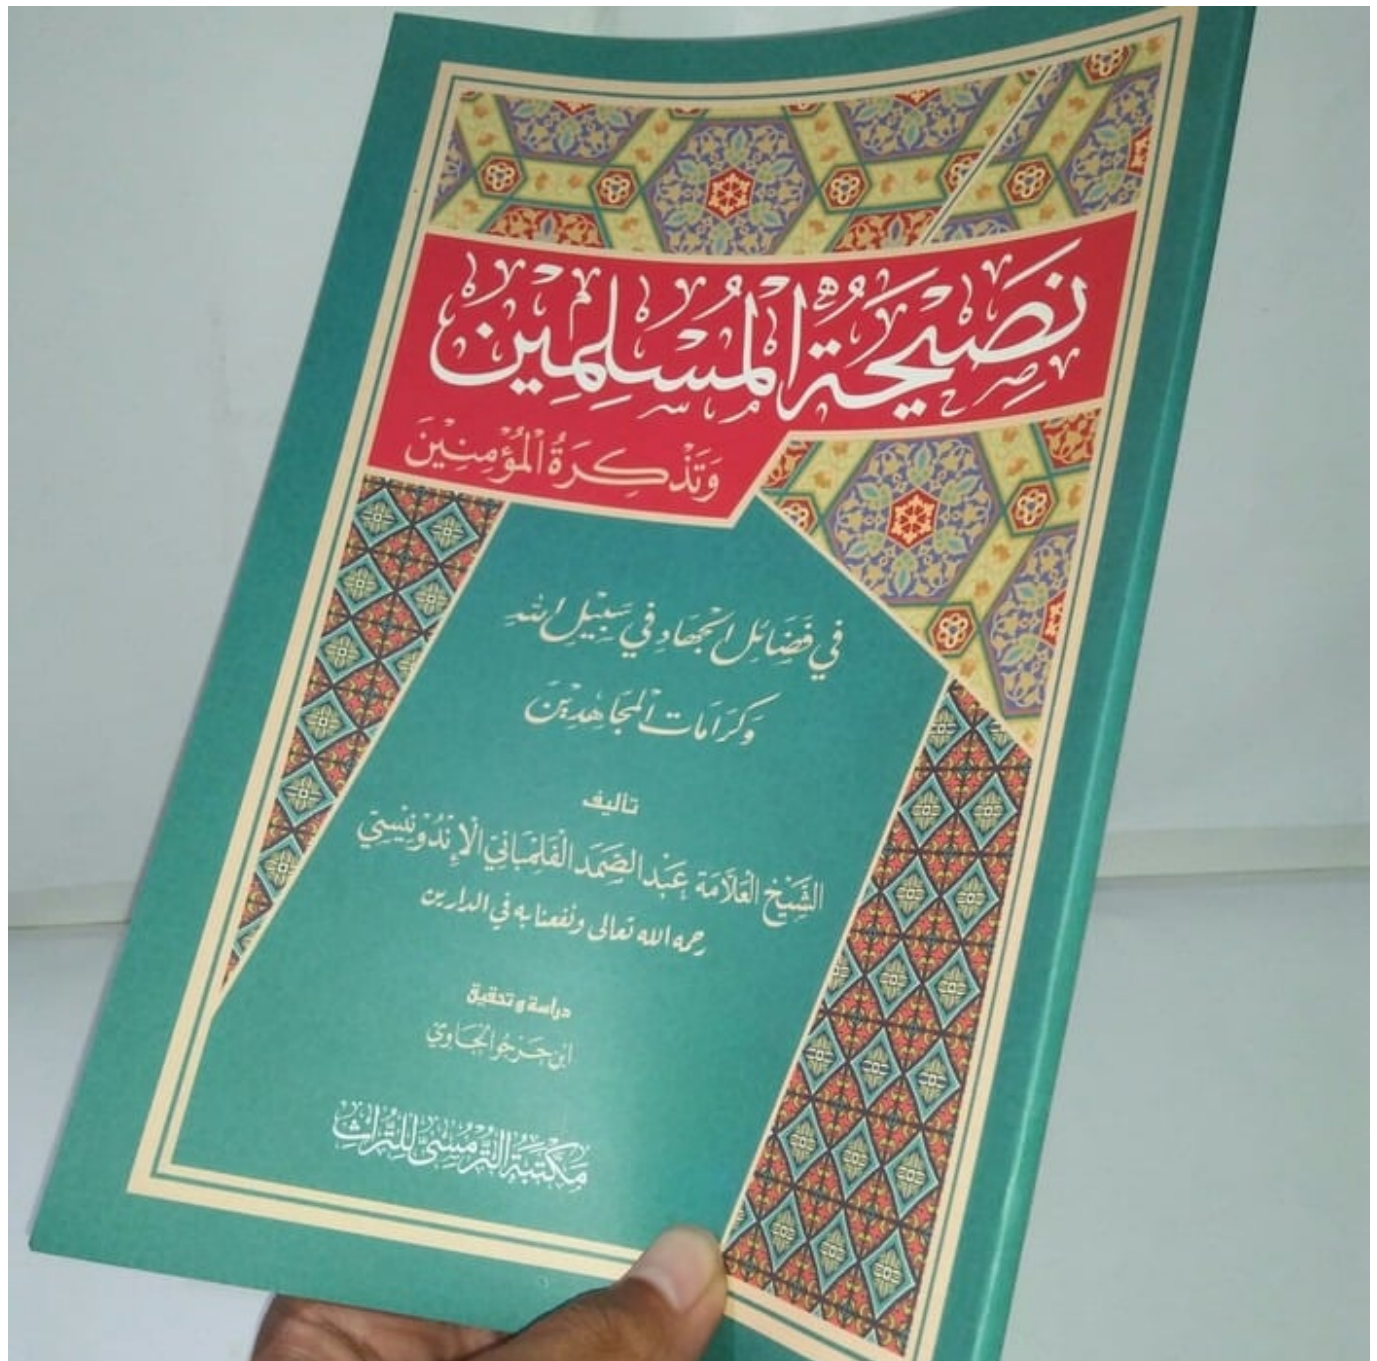 نَصِيْحَةُ الْمُسْلِمِيْن
وَتَذْكِرَةُ الْمُؤْمِنِيْنَ
فِي فَضَائِلِ الْجِهَادِ فِي سَبِيْلِ اللهِ
وَكَرَامَاتِ الْمُجَاهِدِيْنَ
تأليف
الشَّيْخ الْعَلَّامَة عَبْد الصَّمَد الْفَلِمْبَانِيّ الْإِنْدُوْنِيْسِيّ
رحمه الله تعالى ونفعنا به في الدارين
دراسة وتحقيق
ابن حَرْجُو الْجَاوِيّ
مَكْتَبَةُ التَّرْمَسِيِّ لِلتُّرَاثِ